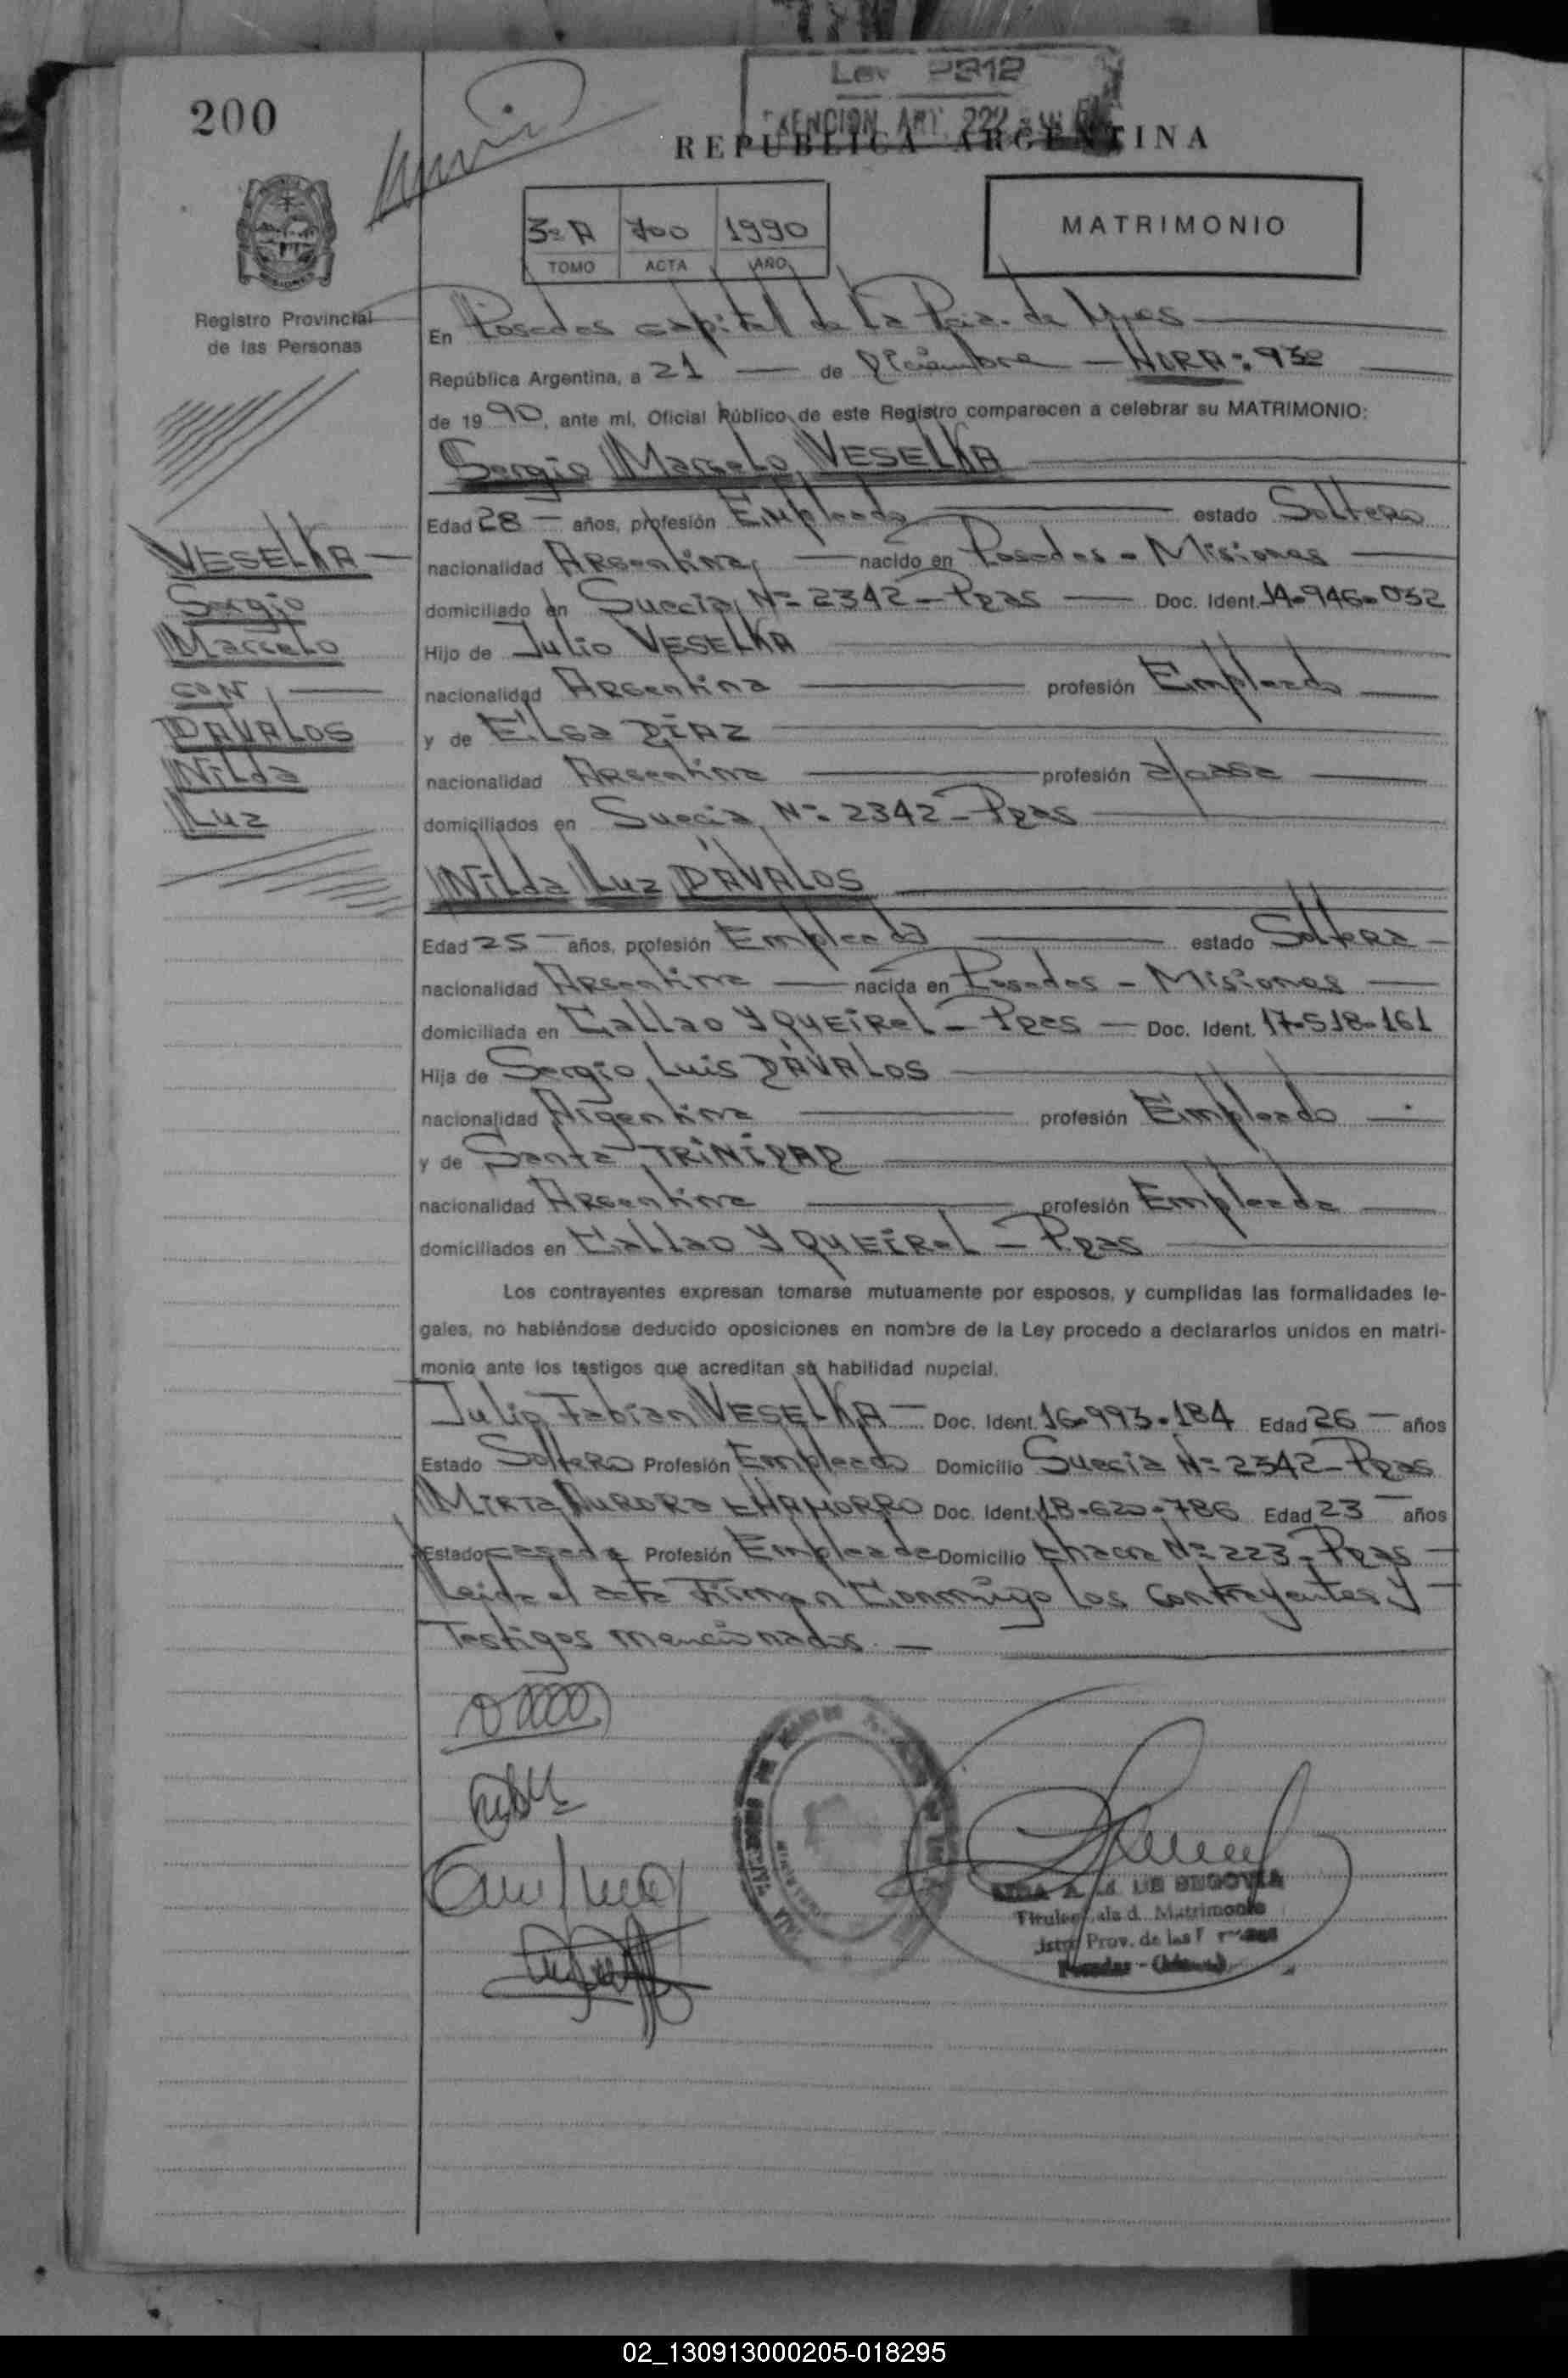 200
Ley 2312
EXENCION ART. 222
REPUBLICA ARGENTINA
3º A 700 1990
TOMO ACTA AÑO
MATRIMONIO
Registro Provincial
de las Personas
En Posadas capital de la Pcia. de Mnes
República Argentina, a 21 — de Diciembre — HORA: 9 30
de 1990, ante mí, Oficial Público de este Registro comparecen a celebrar su MATRIMONIO:
Sergio Marcelo VESELKA
Edad 28 — años, profesión Empleado estado Soltero
nacionalidad Argentina — nacido en Posadas - Misiones
domiciliado en Suecia Nº 2342 - Pdas — Doc. Ident. 14.946.052
Hijo de Julio VESELKA
nacionalidad Argentina profesión Empleado
y de Elsa DÍAZ
nacionalidad Argentina profesión a/casa
domiciliados en Suecia Nº 2342 - Pdas
Nilda Luz DÁVALOS
Edad 25 — años, profesión Empleada estado Soltera
nacionalidad Argentina — nacida en Posadas - Misiones
domiciliada en Callao y QUEIREL - Pdas — Doc. Ident. 17.518.161
Hija de Sergio Luis DÁVALOS
nacionalidad Argentina profesión Empleado
y de Santa TRINIDAD
nacionalidad Argentina profesión Empleada
domiciliados en Callao y QUEIREL - Pdas
Los contrayentes expresan tomarse mutuamente por esposos, y cumplidas las formalidades le-
gales, no habiéndose deducido oposiciones en nombre de la Ley procedo a declararlos unidos en matri-
monio ante los testigos que acreditan su habilidad nupcial.
Julio Fabian VESELKA — Doc. Ident. 16.993.184 Edad 26 — años
Estado Soltero Profesión Empleado Domicilio Suecia Nº 2342 - Pdas
Mirta Aurora CHAMORRO Doc. Ident. 18.620.786 Edad 23 — años
Estado casada Profesión Empleada Domicilio Chacra Nº 223 - Pdas —
Leída el acta Firman Conmigo los contrayentes y
Testigos mencionados. —
VESELKA —
Sergio
Marcelo
CON
DÁVALOS
Nilda
Luz
DE SEGOVIA
Matrimonio
Prov. de las
Posadas
02_130913000205-018295